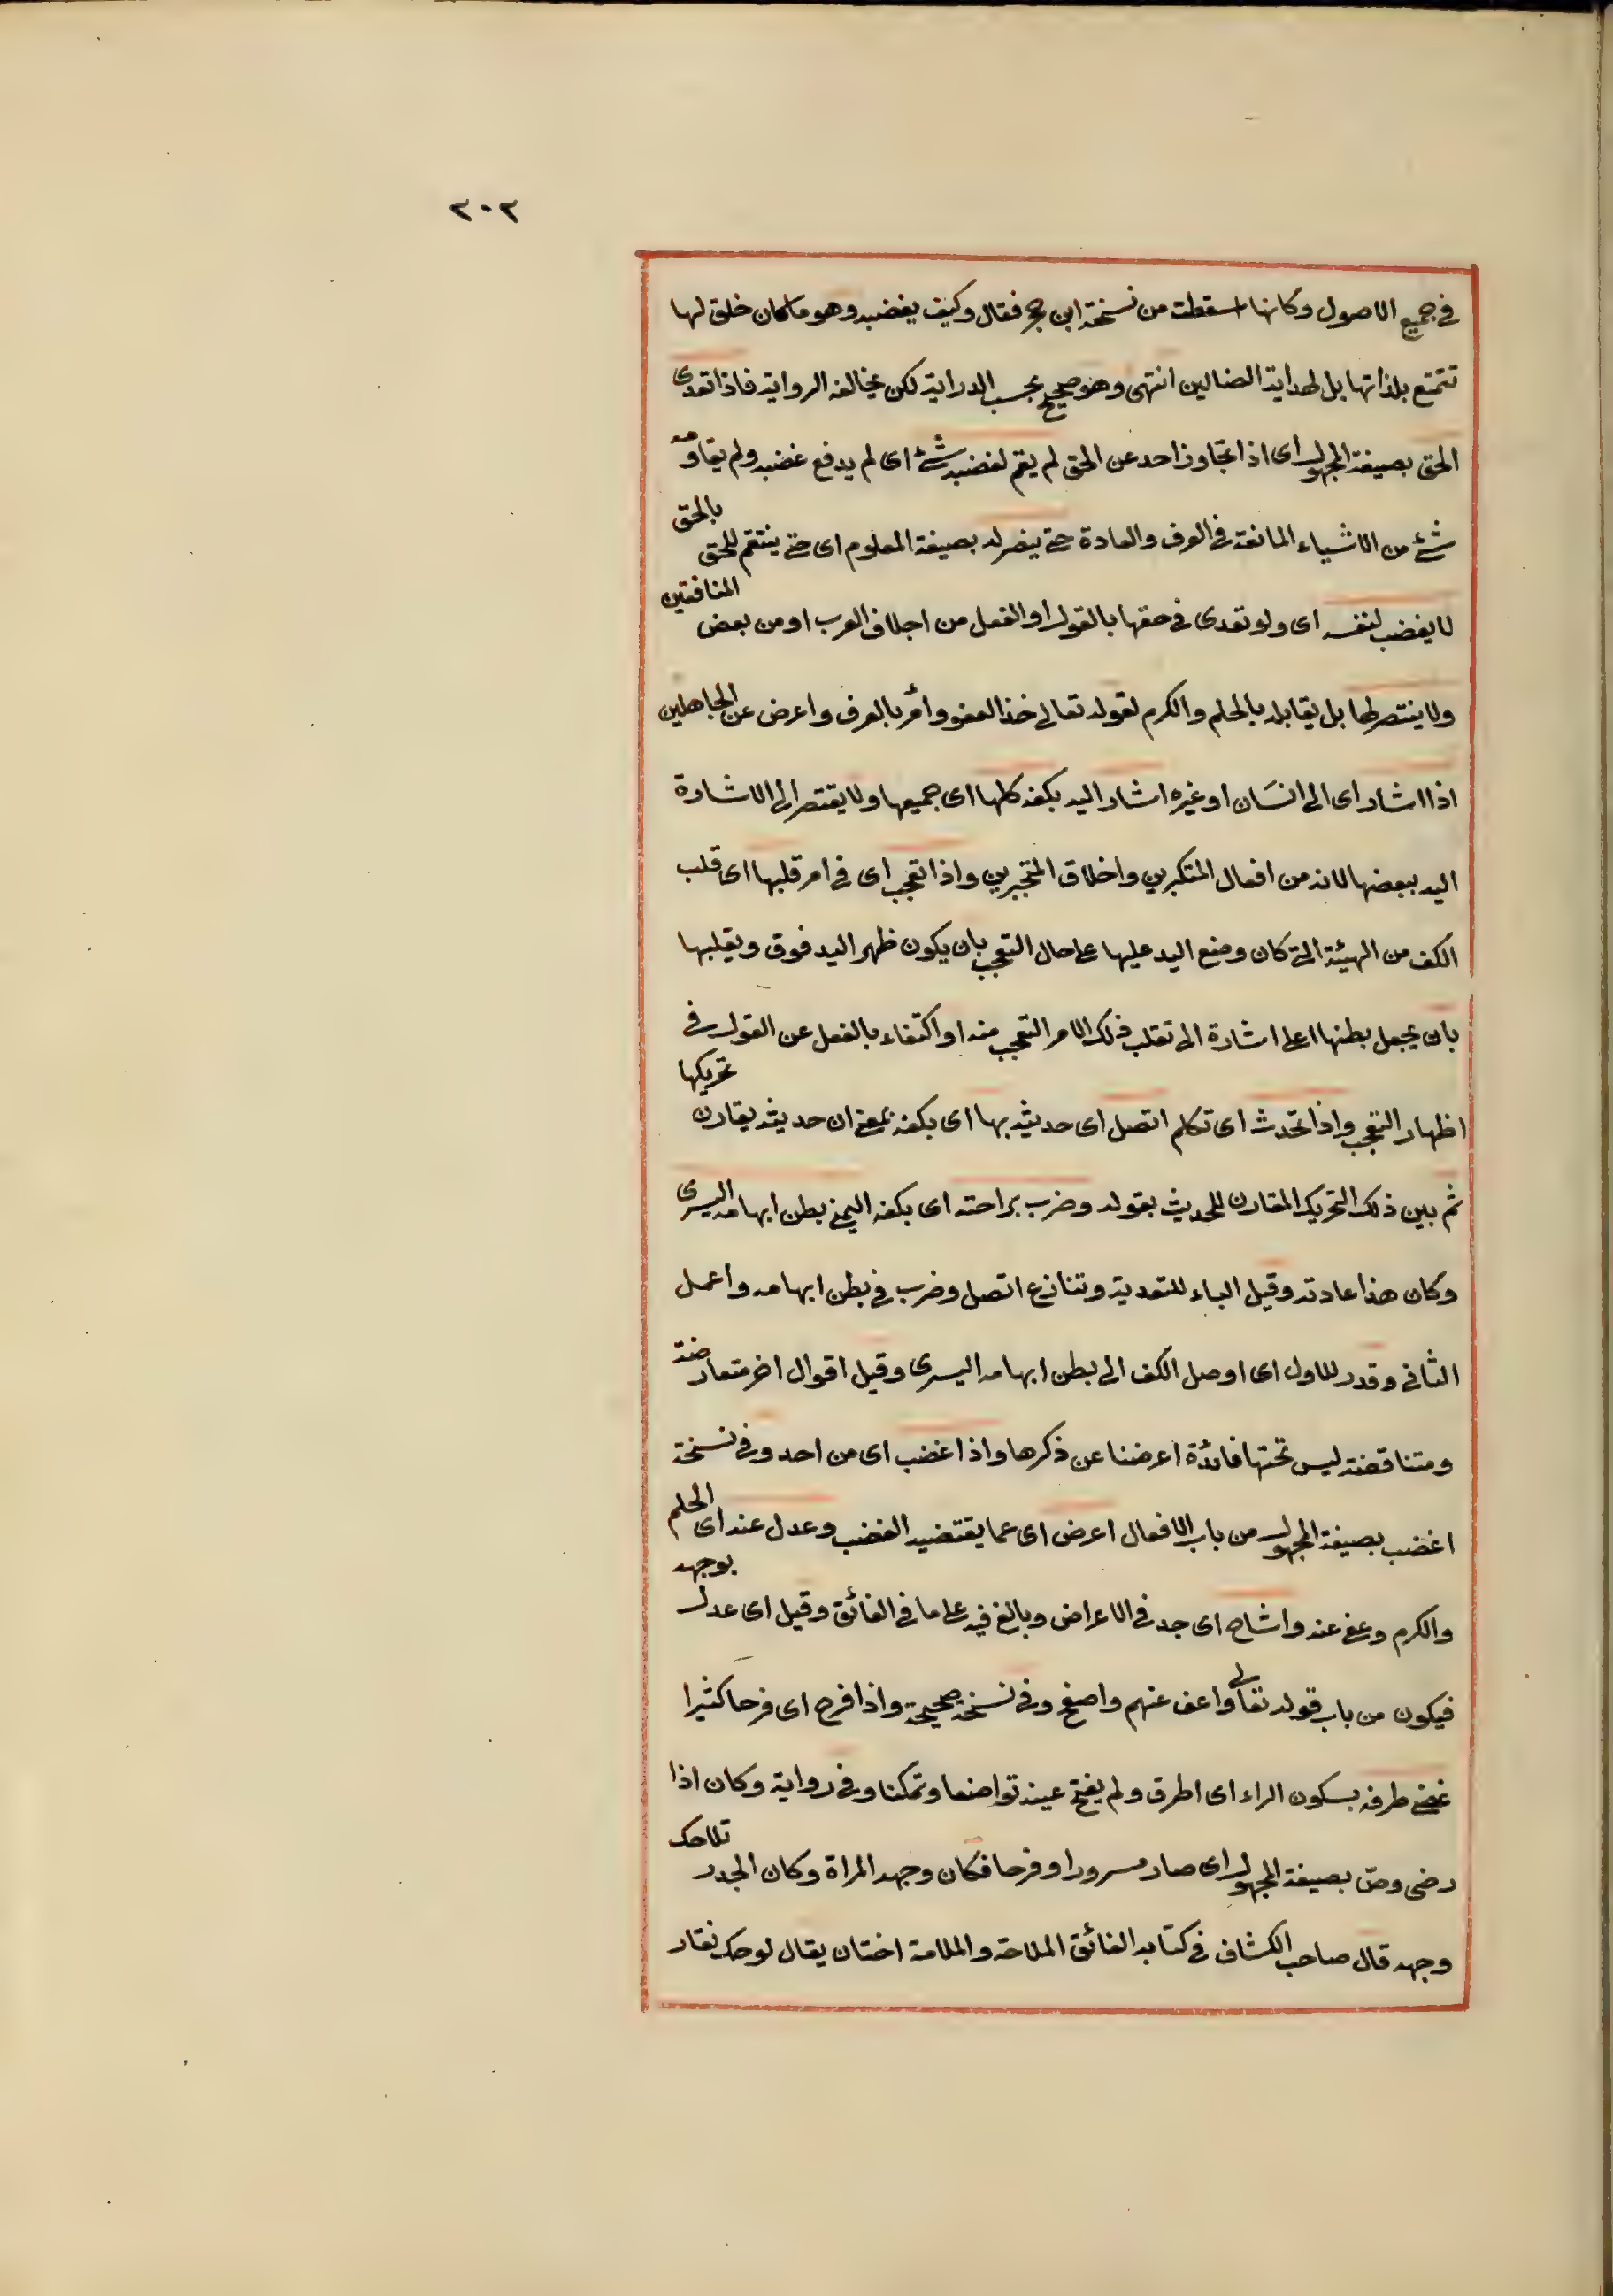 ٢٠٢
في جميع الاصول وكانها اسقطت من نسخة ابن حجر فقال وكيف يغضبه وهو ما كان خلق لها
تتمتع بلذاتها بل لهداية الضالين انتهى وهو صحيح بحسب الدراية لكن يخالفه الرواية فاذا تعدى
الحق بصيغة المجهول اى اذا تجاوز احد عن الحق لم يقم لغضبه شئ اى لم يدفع غضبه ولم يقاومه
شئ من الاشياء المانعة في العرف والعادة حتى ينصر له بصيغة المعلوم اى حتى ينتقم للحق بالحق
لا يغضب لنفسه اى ولو تعدى في حقها بالقول او الفعل من اجلاف العرب او من بعض المنافقين
ولا ينتصر لها بل يقابله بالحلم والكرم لقوله تعالى خذ العفو وأمر بالعرف واعرض عن الجاهلين
اذا اشار اى الى انسان او غيره اشار اليه بكفه كلها اى جميعها ولا يقتصر الى الاشارة
اليه ببعضها لانه من افعال المتكبرين واخلاق المتجبرين واذا تعجب اى في امر قلبها اى قلب
الكف من الهيئة التى كان وضع اليد عليها على حال التعجب بان يكون ظهر اليد فوق ويقلبها
بان يجعل بطنها اعلى اشارة الى تقلب ذلك الامر التعجب منه او اكتفاء بالفعل عن القول في
اظهار التعجب واذا تحدث اى تكلم اتصل اى حديثه بها اى بكفه بمعنى ان حديثه يقارن تحريكها
ثم بين ذلك التحريك المقارن للحديث بقوله وضرب براحته اى بكفه اليمنى بطن ابهامه اليسرى
وكان هذا عادته وقيل الباء للتعدية وتنازع اتصل وضرب في بطن ابهامه واعمل
الثانى وقدر للاول اى اوصل الكف الى بطن ابهامه اليسرى وقيل اقوال اخر متعارضة
ومتناقضة ليس تحتها فائدة اعرضنا عن ذكرها واذا غضب اى من احد وفي نسخة
اغضب بصيغة المجهول من باب الافعال اعرض اى عما يقتضيه الغضب وعدل عنه اى الحلم
والكرم وعفى عنه واشاح اى جد في الاعراض وبالغ فيه على ما في الفائق وقيل اى عدل بوجهه
فيكون من باب قوله تعالى واعف عنهم واصفح وفي نسخة صحيحة واذا فرح اى فرحا كثيرا
غض طرفه بسكون الراء اى اطرق ولم يفتح عينه تواضعا وتمكنا وفي رواية وكان اذا
رضى وسر بصيغة المجهول اى صار مسرورا وفرحا فكان وجهه المراة وكان الجدر تلاحك
وجهه قال صاحب الكشاف في كتابه الفائق الملاحة والملامة اختان يقال لوحك فقار